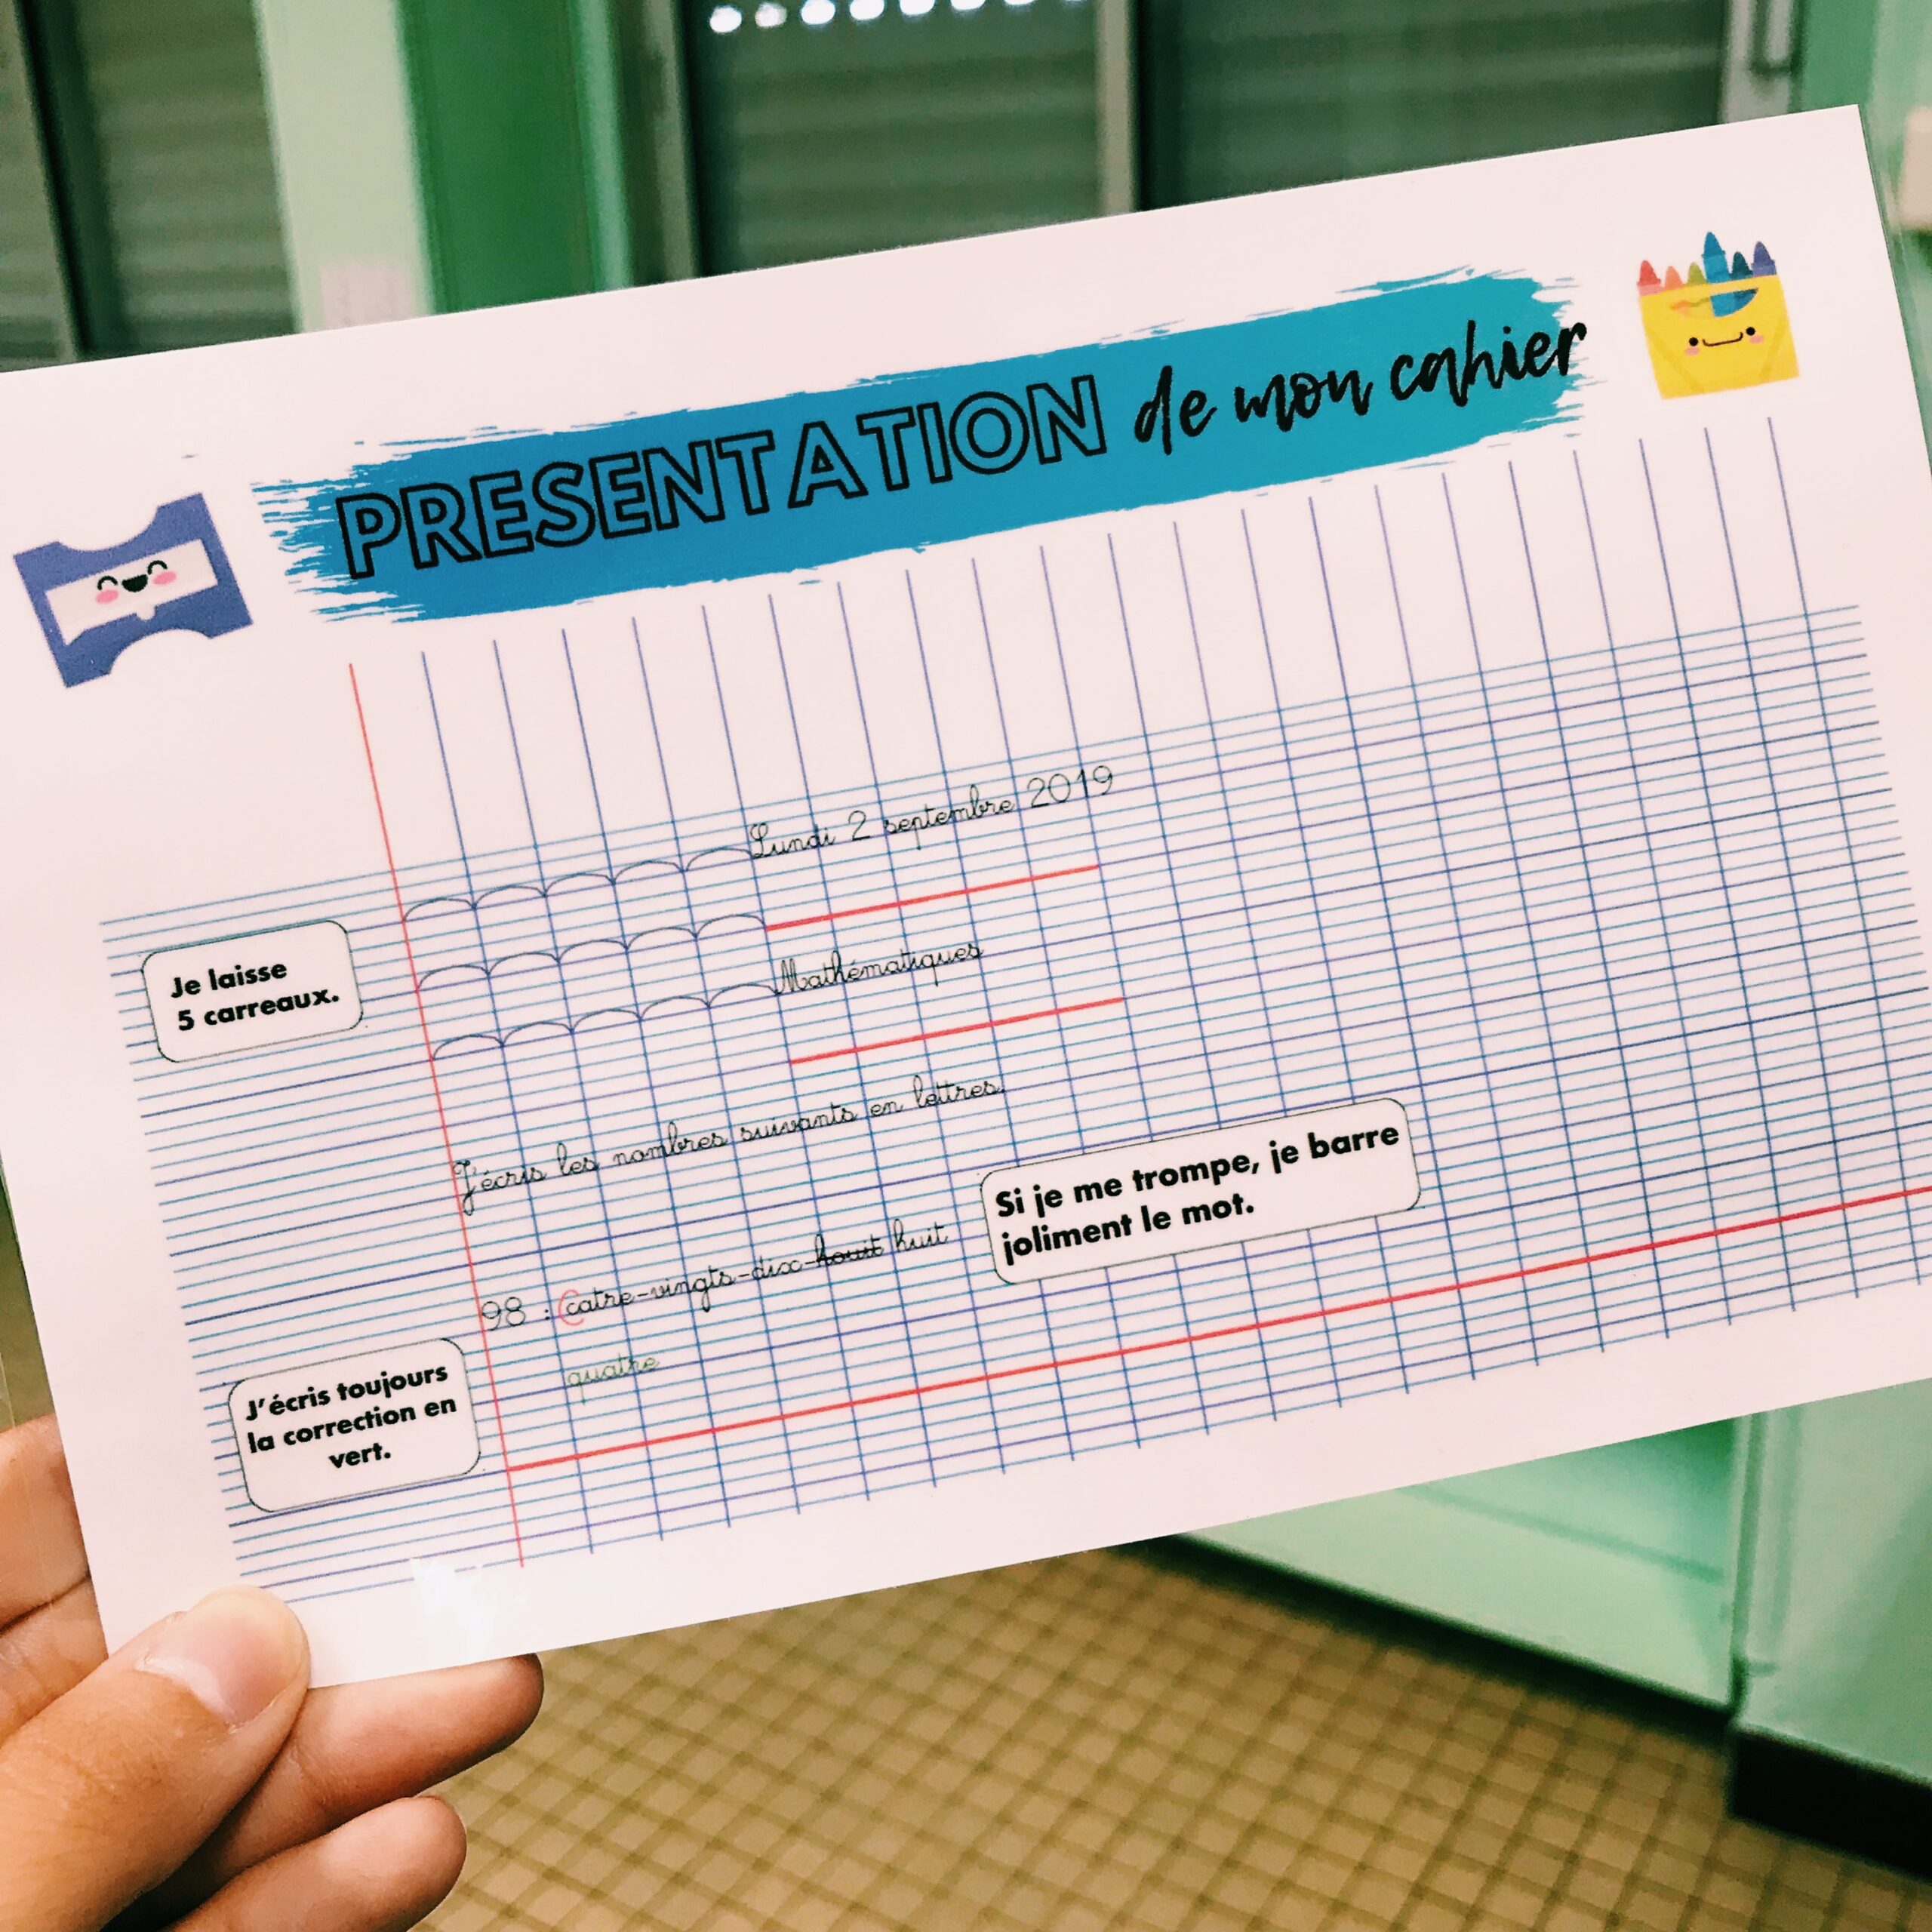 PRESENTATION de mon cahier
Lundi 2 septembre 2019
Je laisse
5 carreaux.
Mathématiques
J'écris les nombres suivants en lettres.
Si je me trompe, je barre
joliment le mot.
98 : Catre-vingts-dix-houit huit
quatre
J'écris toujours
la correction en
vert.